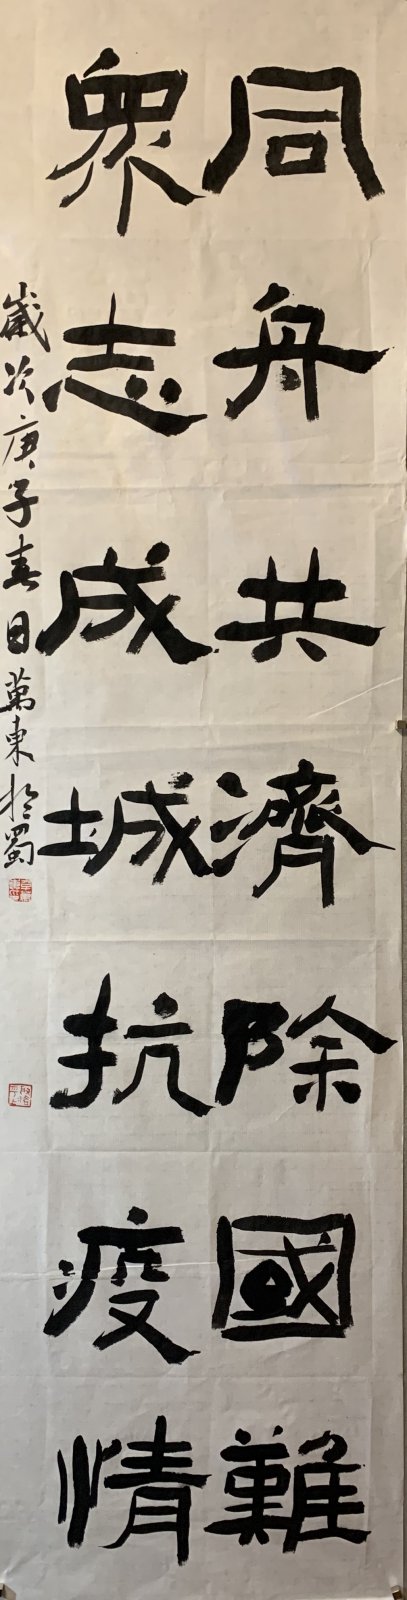 同舟共濟除國難
衆志成城抗疫情
歲次庚子春日萬東於蜀